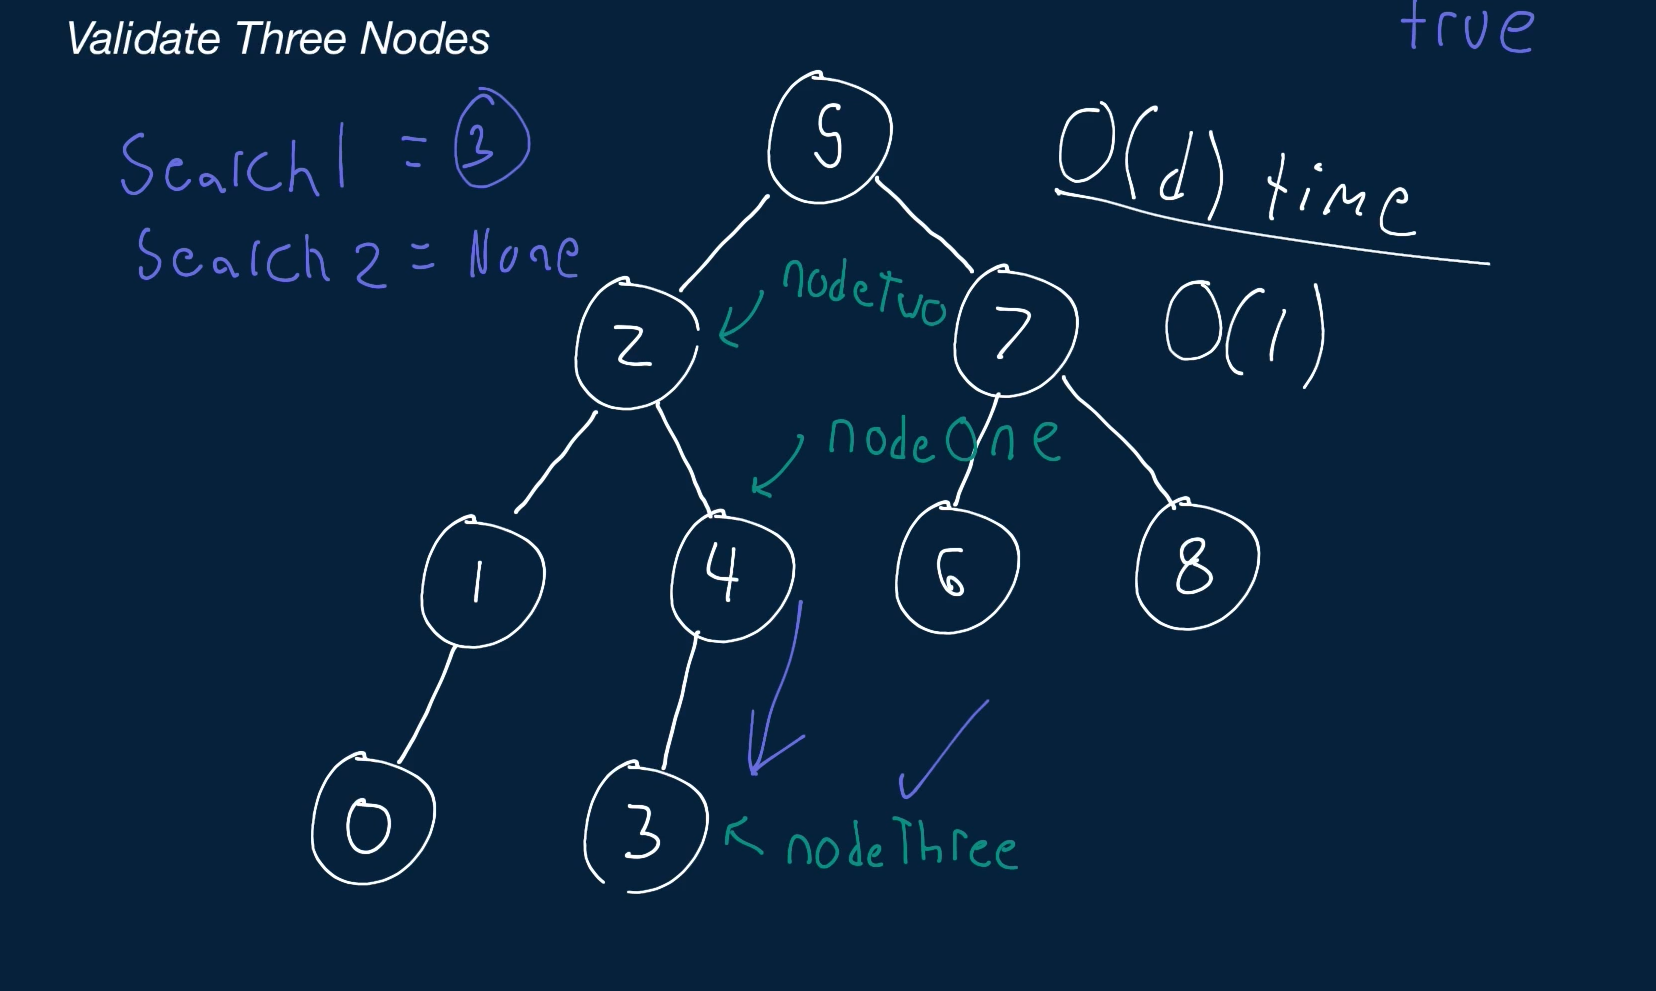 Validate Three Nodes
true
Search1 = 3
Search 2 = None
O(d) time
O(1)
5
nodeTwo
2
7
nodeOne
1
4
6
8
0
3
nodeThree